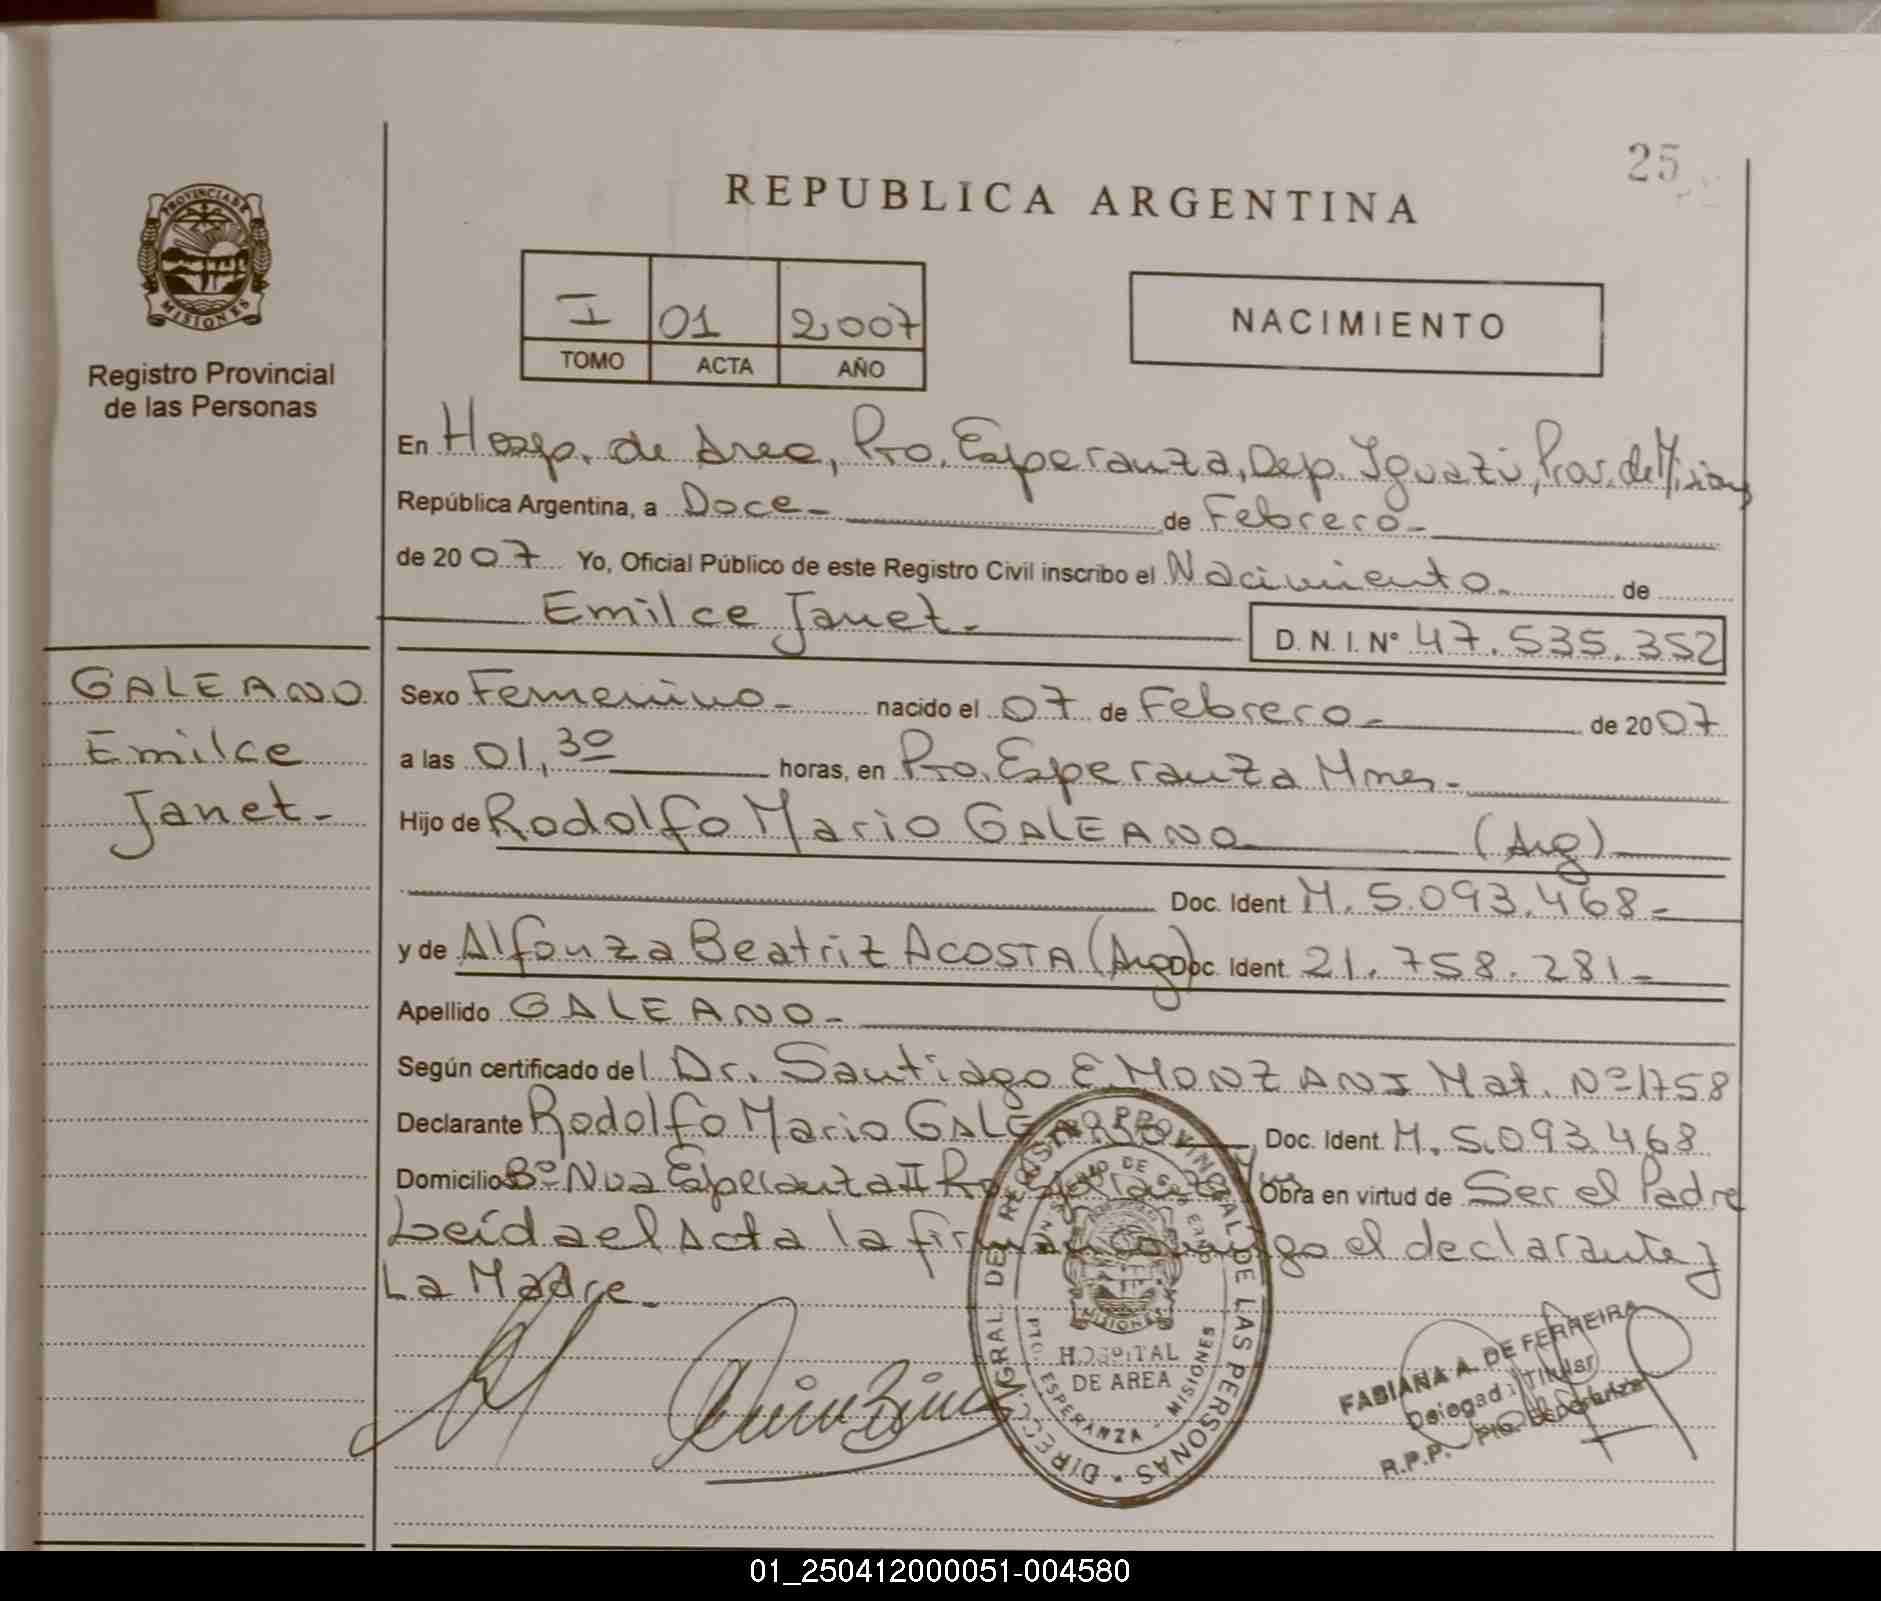 25
REPUBLICA ARGENTINA
PROVINCIA DE
MISIONES
Registro Provincial
de las Personas
I 01 2007
TOMO ACTA AÑO
NACIMIENTO
En Hosp. de Area, Pto. Esperanza, Dep. Iguazú, Prov. de Misiones
República Argentina, a Doce - de Febrero -
de 20 07 Yo, Oficial Público de este Registro Civil inscribo el Nacimiento - de
Emilce Janet -
D. N. I. N° 47.535.352
GALEANO
Emilce
Janet -
Sexo Femenino - nacido el 07 de Febrero - de 20 07
a las 01,30 horas, en Pto. Esperanza Mnes -
Hijo de Rodolfo Mario GALEANO (Arg)
Doc. Ident. M. 5.093.468 -
y de Alfonza Beatriz ACOSTA (Arg) Doc. Ident. 21.758.281 -
Apellido GALEANO -
Según certificado del Dr. Santiago E. MONZANI Mat. Nº 1758
Declarante Rodolfo Mario GALEANO Doc. Ident. M. 5.093.468
Domicilio Bº Nva Esperanza II Pto Esperanza Obra en virtud de Ser el Padre
Leída el Acta la firman conmigo el declarante y
La Madre -
DIRECC. GRAL. DEL REGISTRO PROVINCIAL DE LAS PERSONAS
MISIONES
HOSPITAL
DE AREA
PTO. ESPERANZA - MISIONES
FABIANA A. DE FERREIRA
Delegada Titular
R.P.P. Pto. Esperanza
01_250412000051-004580